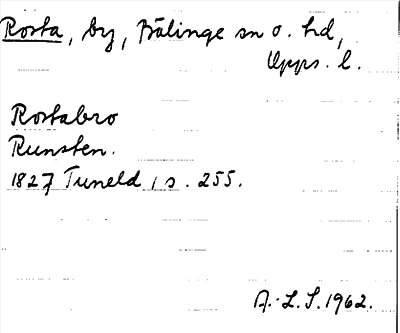 Rosta, by, Bälinge sn o. hd,
Upps. l.
Rostabro
Runsten.
1827 Tuneld 1 s. 255.
A.-L.S. 1962.